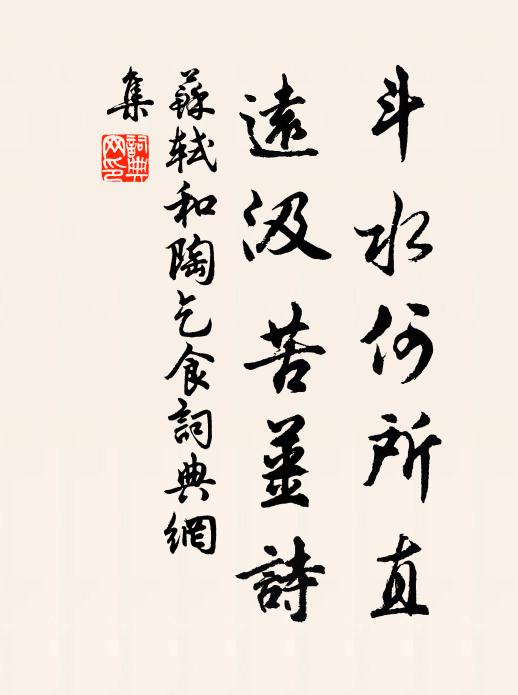 斗水何所直
遠汲苦薑詩
蘇軾和陶乞食詞典網
集
詞典
网印